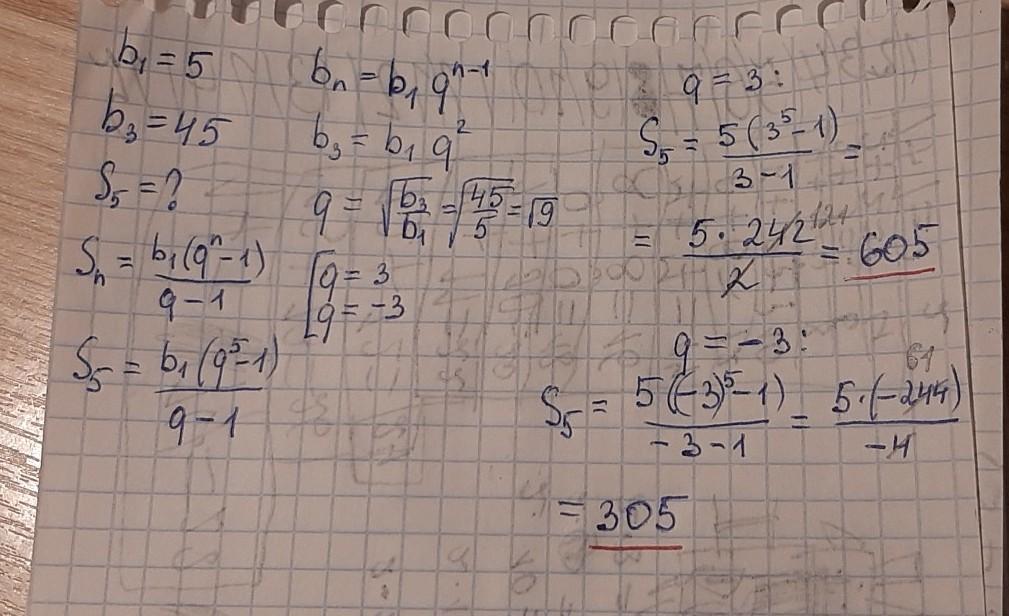 b₁ = 5
b₃ = 45
S₅ = ?
Sₙ = b₁(qⁿ-1) / q-1
S₅ = b₁(q⁵-1) / q-1
bₙ = b₁ qⁿ⁻¹
b₃ = b₁ q²
q = √(b₃/b₁) = √(45/5) = √9
[ q = 3
q = -3
q = 3:
S₅ = 5(3⁵-1) / 3-1 =
= 5·242 121 / 2 = 605
q = -3:
S₅ = 5((-3)⁵-1) / -3-1 = 5·(-244) 61 / -4
= 305